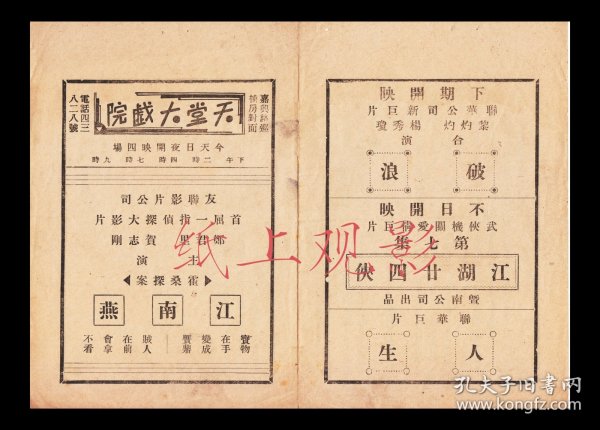 下期開映
聯華公司新巨片
黎灼灼 楊秀瓊
合演
破浪
不日開映
武俠機關愛情巨片
第七集
江湖廿四俠
暨南公司出品
聯華巨片
人生
嘉興路橋
捕房對面
天堂大戲院
電話四三
八二八號
今天日夜開映四場
下午二時 四時 七時 九時
友聯影片公司
首屈一指偵探大影片
鄭君里 賀志剛
主演
霍桑探案
江南燕
寶物
在手
變成
賊人
在前
會拿
不看
纸上观影
孔夫子旧书网
www.kongfz.com